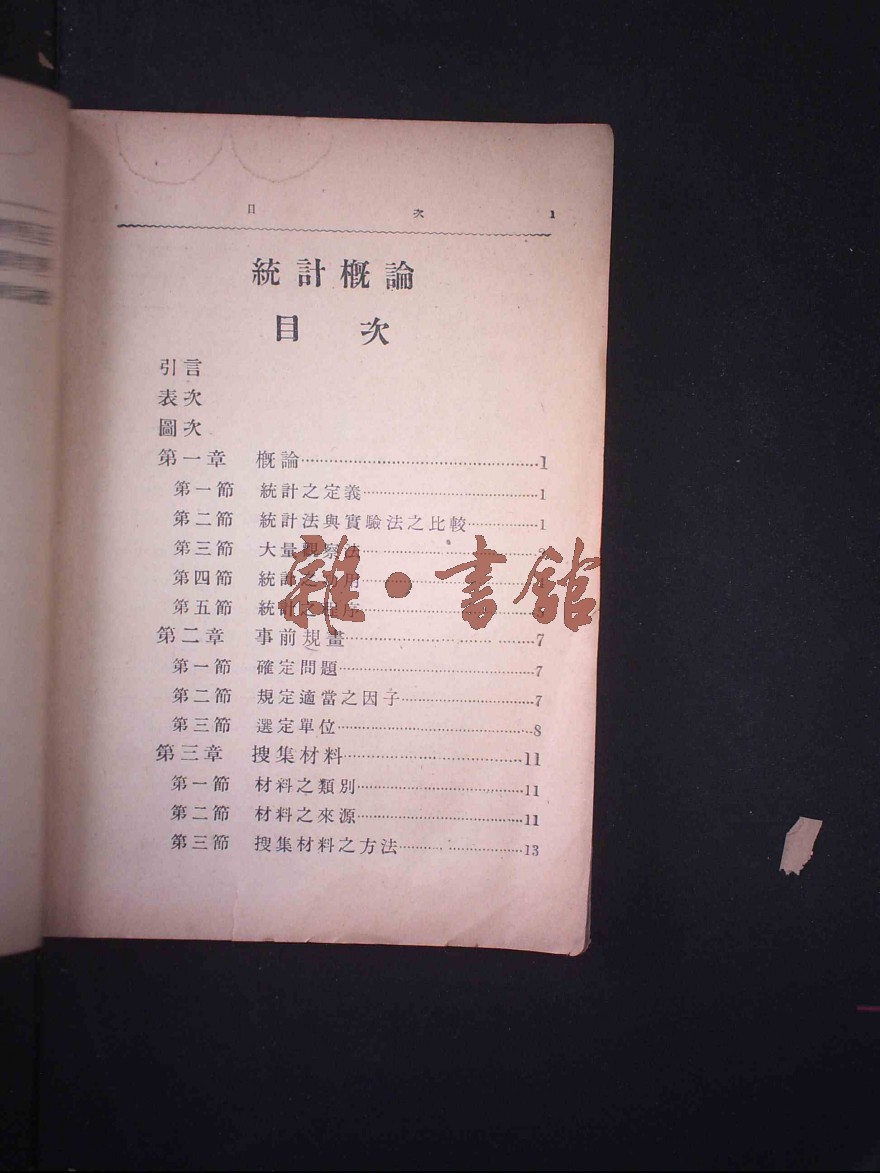 目次 1
統計概論
目次
引言
表次
圖次
第一章 概論 1
第一節 統計之定義 1
第二節 統計法與實驗法之比較 1
第三節 大量觀察法
第四節 統計之 用
第五節 統計之程序
第二章 事前規畫 7
第一節 確定問題 7
第二節 規定適當之因子 7
第三節 選定單位 8
第三章 搜集材料 11
第一節 材料之類別 11
第二節 材料之來源 11
第三節 搜集材料之方法 13
雜·書館